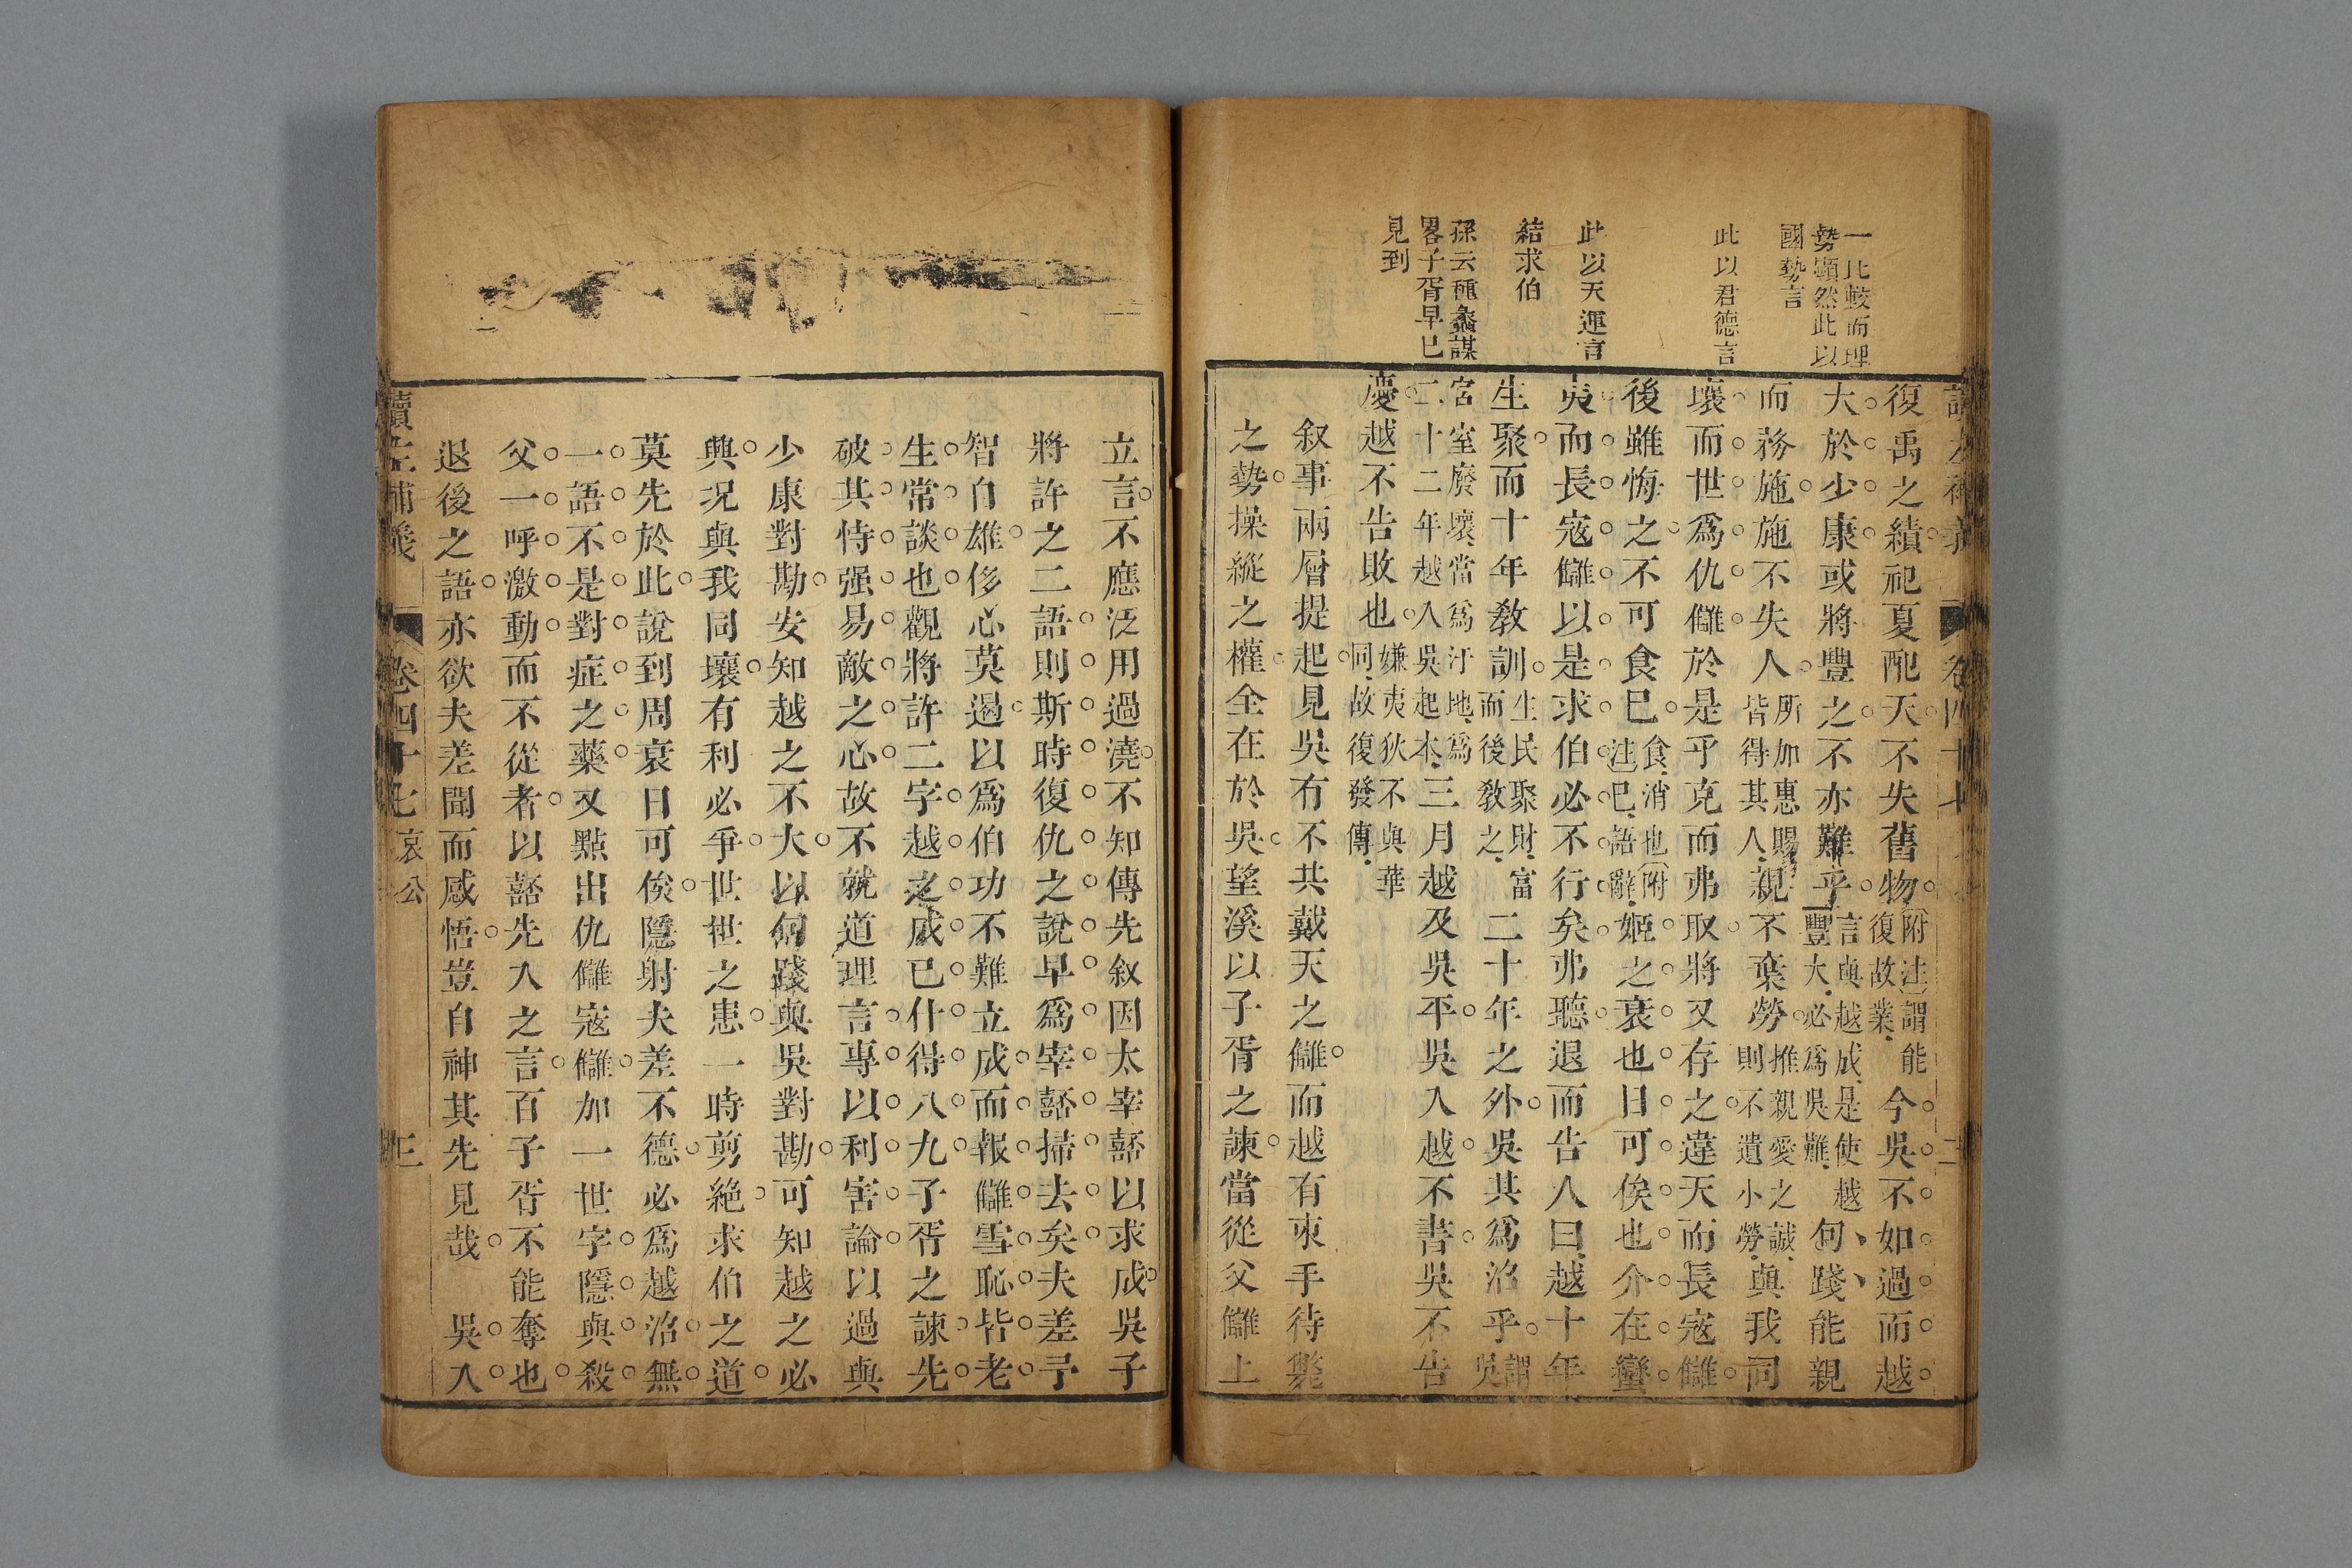 一比較而理
勢顯然此以
國勢言
此以君德言
此以天運言
結求伯
孫云種蠡謀
畧子胥早已
見到
卷四十七
復禹之績祀夏配天不失舊物附注謂能復故業今吳不如過而越
大於少康或將豐之不亦難乎言與越成是使越豐大必爲吳難句踐能親
而務施施不失人所加惠賜皆得其人親不棄勞推親愛之誠則不遺小勞與我同
壤而世爲仇讎於是乎克而弗取將又存之違天而長寇讎
後雖悔之不可食已食消也附注已語辭姬之衰也日可俟也介在蠻
夷而長寇讎以是求伯必不行矣弗聽退而告人曰越十年
生聚而十年教訓生民聚財富而後教之二十年之外吳其爲沼乎謂吳
宮室廢壞當爲汙地爲二十二年越入吳起本三月越及吳平吳入越不書吳不告
慶越不告敗也嫌夷狄不與華同故復發傳
叙事兩層提起見吳有不共戴天之讎而越有束手待斃
之勢操縱之權全在於吳望溪以子胥之諫當從父讎上
立言不應泛用過澆不知傳先叙因太宰嚭以求成吳子
將許之二語則斯時復仇之說早爲宰嚭掃去矣夫差予
智自雄侈心莫遏以爲伯功不難立成而報讎雪恥皆老
生常談也觀將許二字越之成已什得八九子胥之諫先
破其恃强易敵之心故不就道理言專以利害論以過與
少康對勘安知越之不大以句踐與吳對勘可知越之必
興况與我同壤有利必爭世世之患一時剪絶求伯之道
莫先於此說到周衰日可俟隱射夫差不德必爲越沼無
一語不是對症之藥又點出仇讎寇讎加一世字隱與殺
父一呼激動而不從者以嚭先入之言百子胥不能奪也
退後之語亦欲夫差聞而感悟豈自神其先見哉　吳入
讀左補義　卷四十七　哀公　三